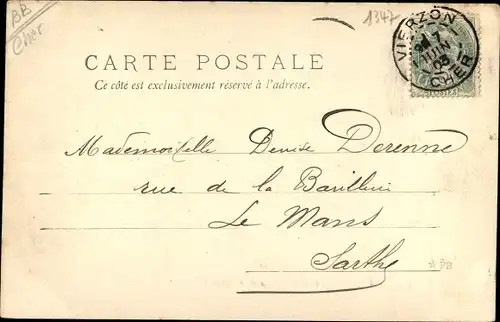 BB
Cher
1347
VIERZON
7
JUIN
03
CHER
CARTE POSTALE
Ce côté est exclusivement réservé à l'adresse.
Mademoiselle Denise Derenne
rue de la Barillerie
Le Mans
Sarthe